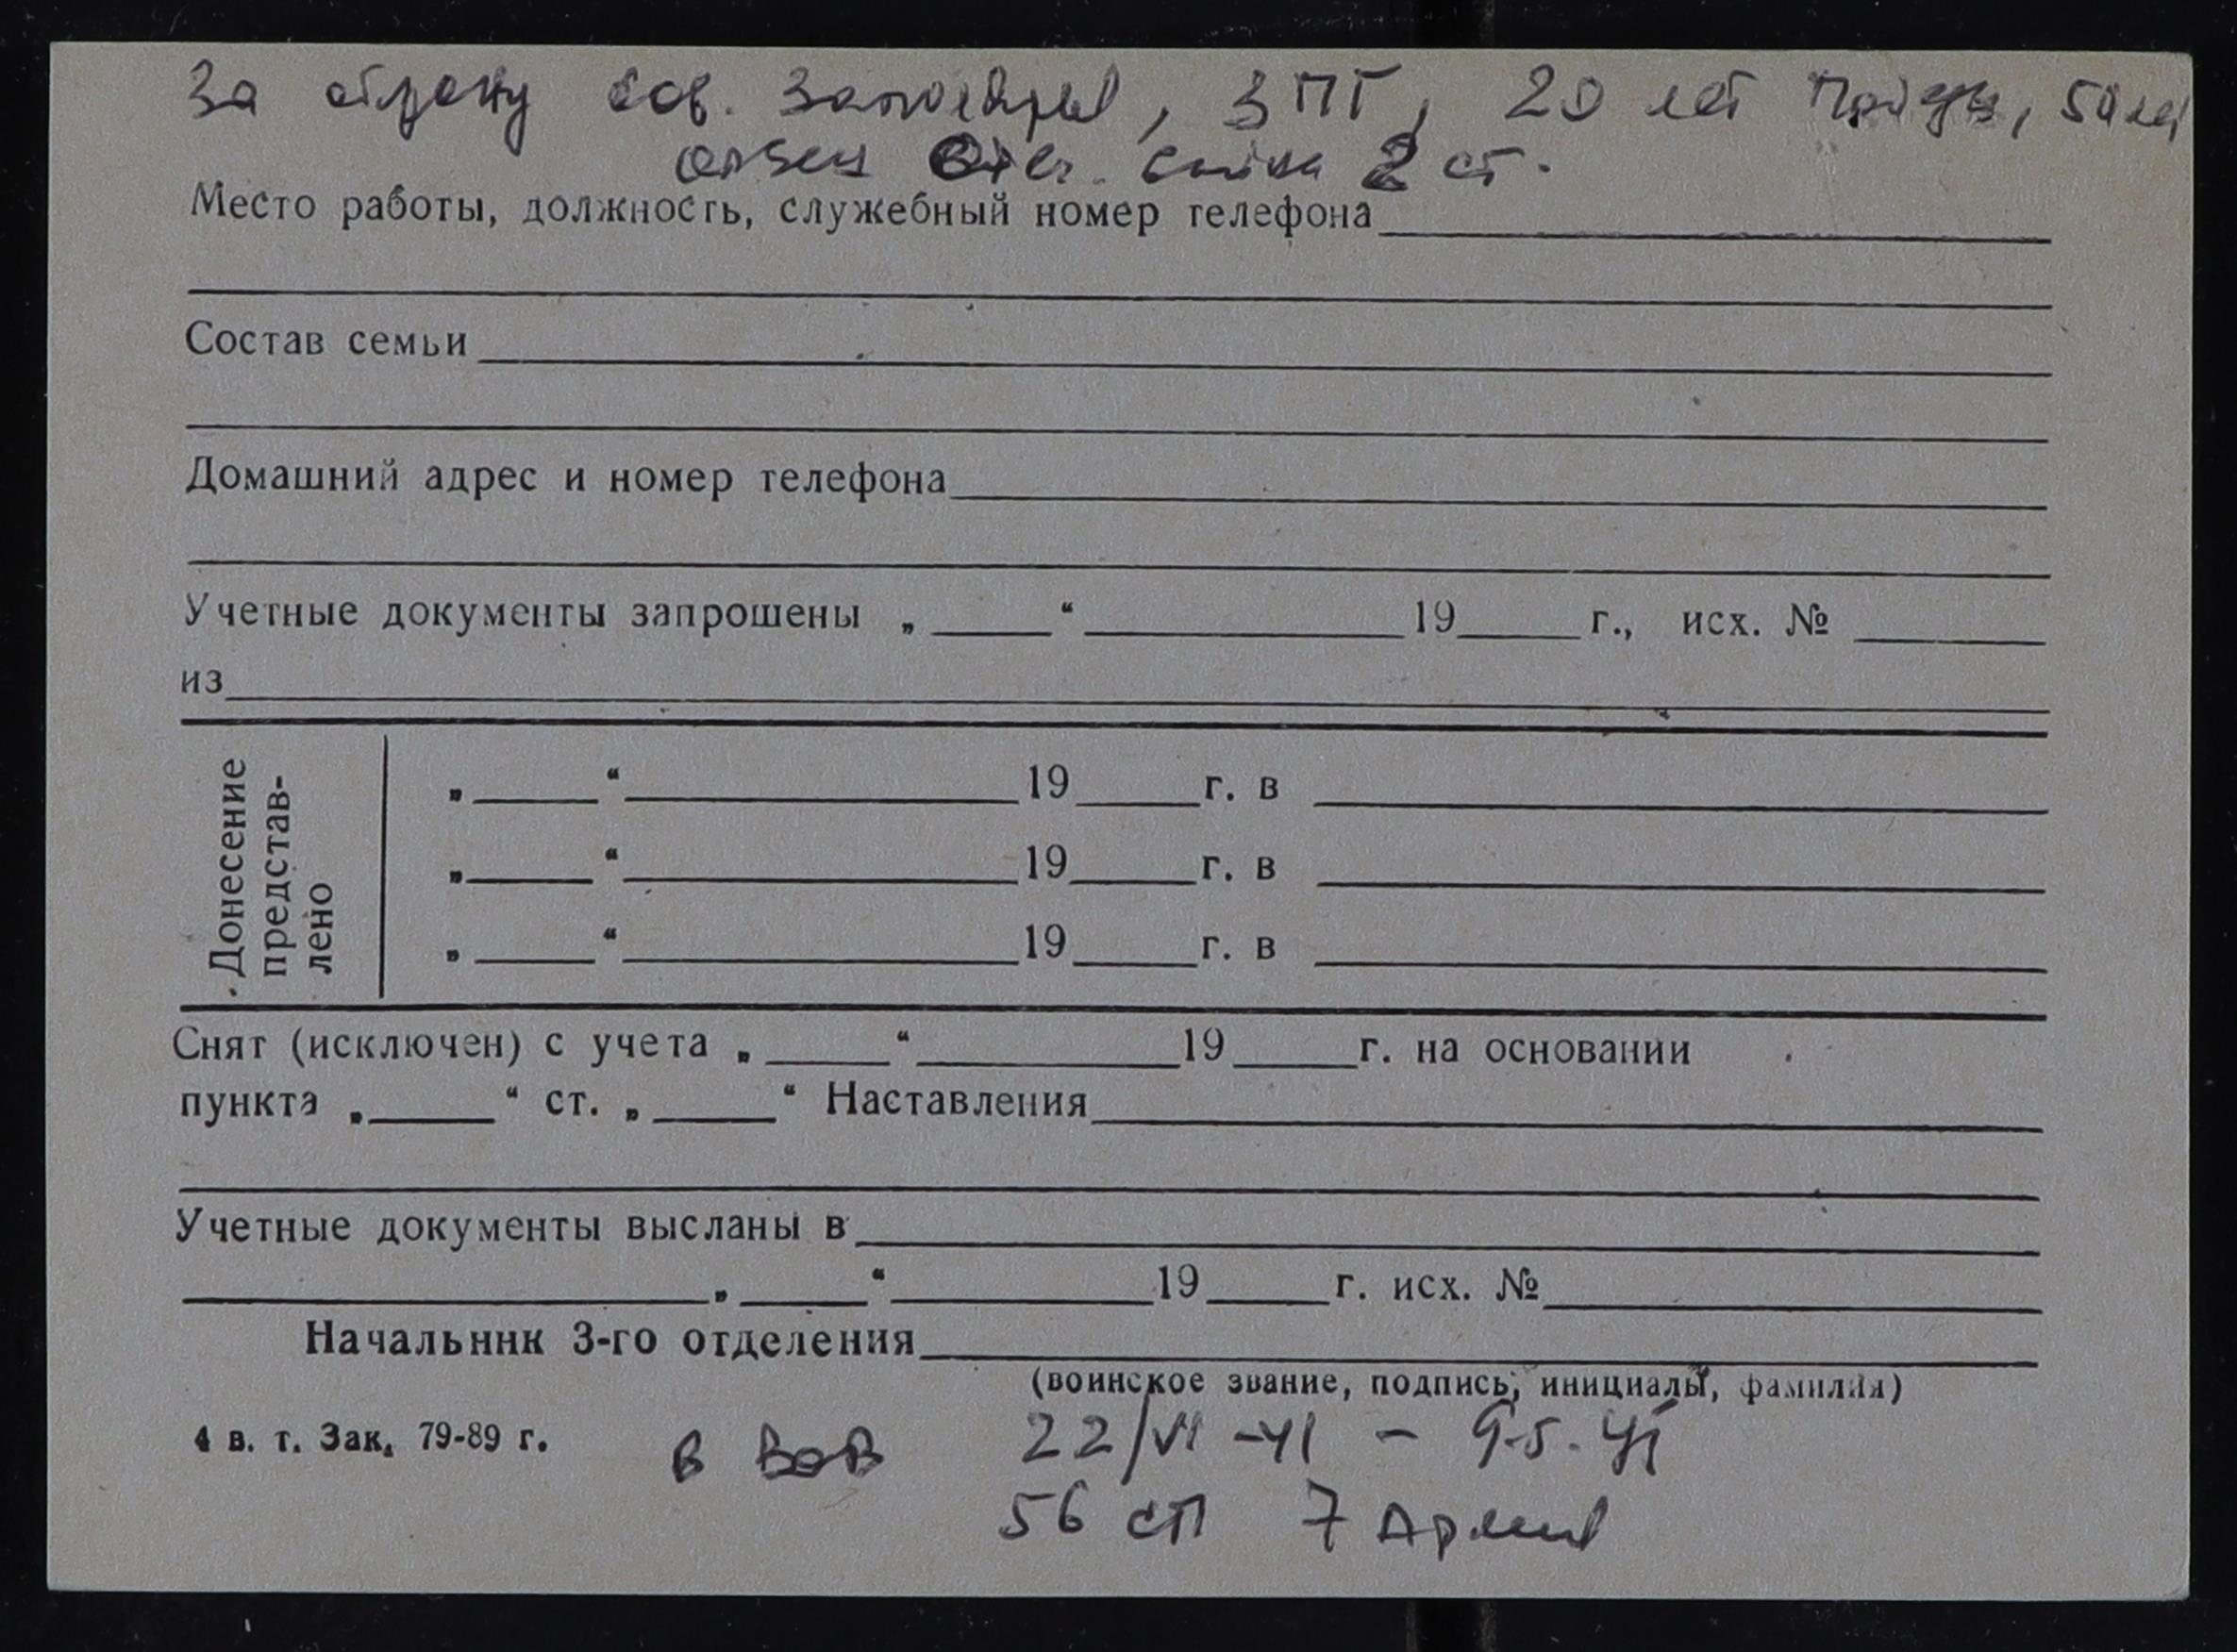 За оборону Сов. Заполярья, ЗПГ, 20 лет Победы, 50 лет
орден Отеч. войны 2 ст.
Место работы, должность, служебный номер телефона
Состав семьи
Домашний адрес и номер телефона
Учетные документы запрошены „ “ 19 г., исх. №
из
Донесение
представ-
лено
„ “ 19 г. в
„ “ 19 г. в
„ “ 19 г. в
Снят (исключен) с учета „ “ 19 г. на основании
пункта „ “ ст. „ “ Наставления
Учетные документы высланы в
„ “ 19 г. исх. №
Начальник 3-го отделения
(воинское звание, подпись, инициалы, фамилия)
4 в. т. Зак. 79-89 г.
в ВОВ 22/VI-41 – 9.5.45
56 сп 7 Армия